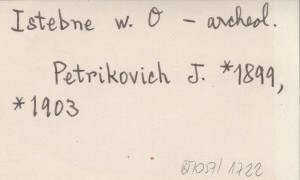 Istebne w. O - archeol.
Petrikovich J. *1899,
*1903
BT1057/1722